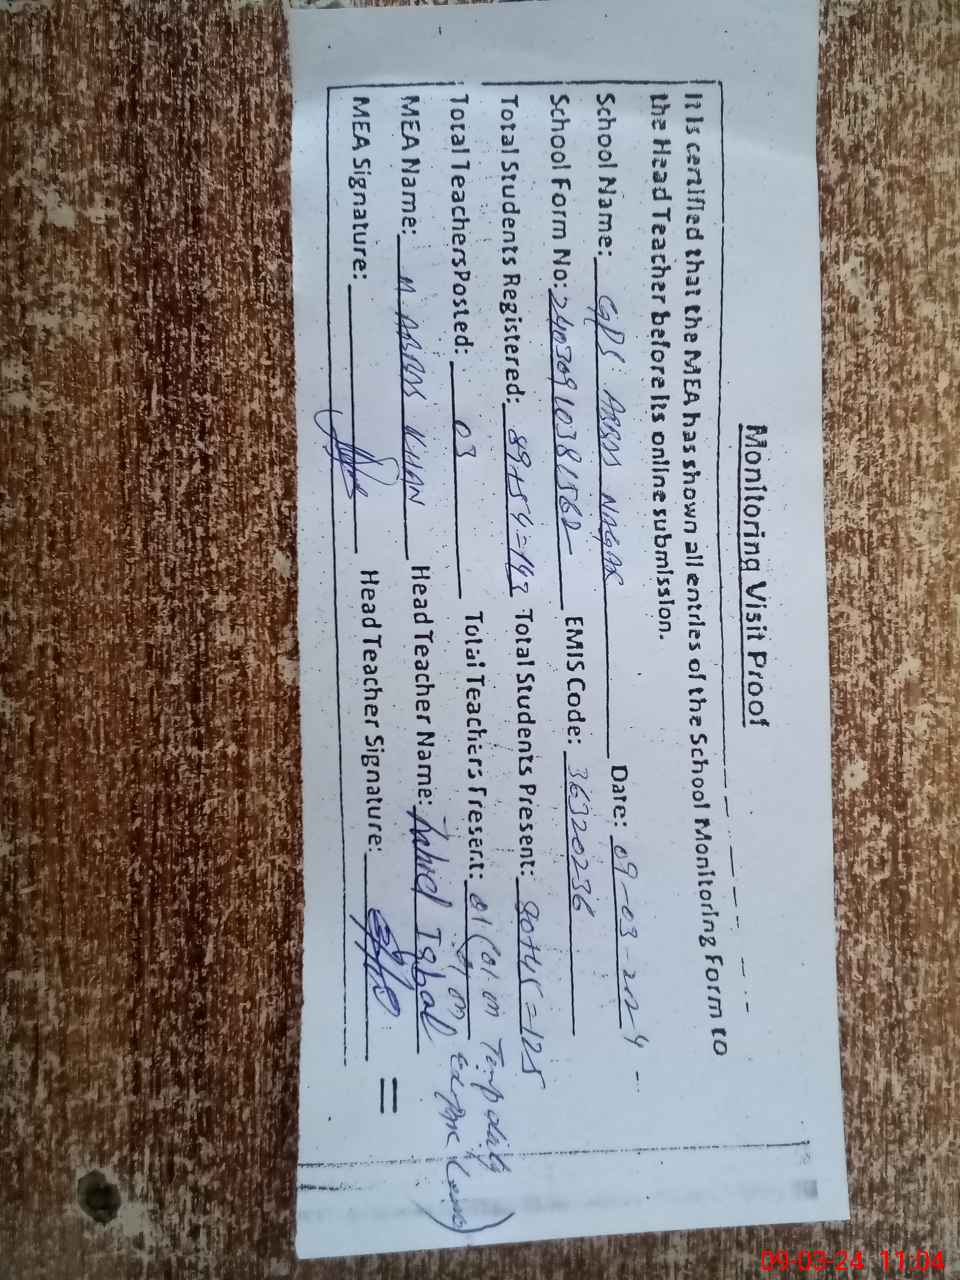 Monitoring Visit Proof
It is certified that the MEA has shown all entries of the School Monitoring Form to
the Head Teacher before its online submission.
School Name: GPS ABBAS NAGAR Date: 09-03-2024
School Form No: EMIS Code: 36320236
Total Students Registered: 89+54=143 Total Students Present: 80+45=125
Total Teachers Posted: 03 Total Teachers Present: 01 (01 on Temp duty
01 on Leave)
MEA Name: M ABBAS KHAN Head Teacher Name: Iqbal
MEA Signature: Head Teacher Signature:
09-03-24 11:04